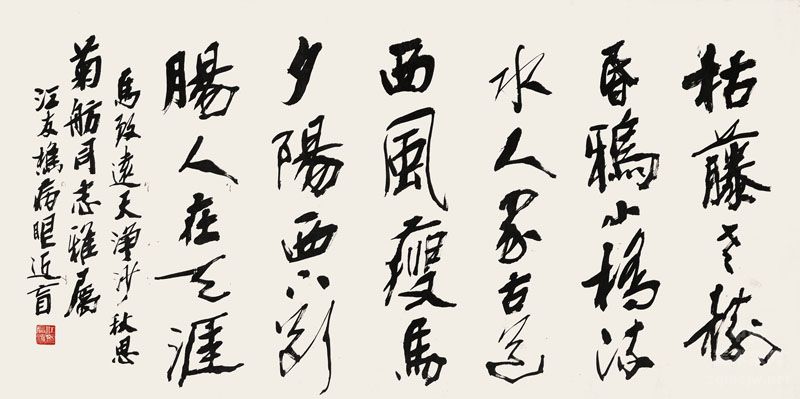 枯藤老樹
昏鴉小橋流
水人家古道
西風瘦馬
夕陽西下斷
腸人在天涯
馬致遠天淨沙秋思
菊舫同志雅屬
江友樵病眼近盲